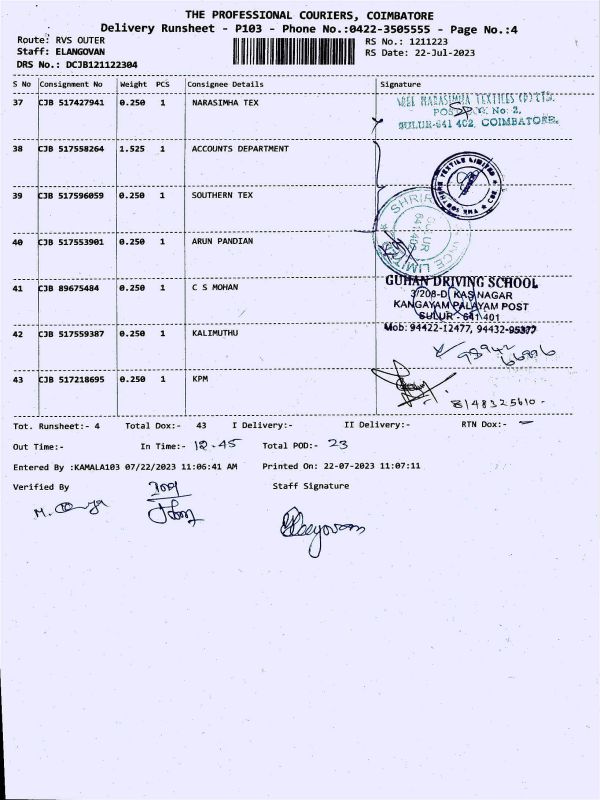 THE PROFESSIONAL COURIERS, COIMBATORE
Delivery Runsheet - P103 - Phone No.:0422-3505555 - Page No.:4
Route: RVS OUTER
RS No.: 1211223
Staff: ELANGOVAN
RS Date: 22-Jul-2023
DRS No.: DCJB121122304
S No Consignment No Weight PCS Consignee Details Signature
37 CJB 517427941 0.250 1 NARASIMHA TEX
SREE NARASIMHA TEXTILES (P) LTD.
POST No: 2,
SULUR-641 402, COIMBATORE.
38 CJB 517558264 1.525 1 ACCOUNTS DEPARTMENT
TEXTILE LIMITED
39 CJB 517596059 0.250 1 SOUTHERN TEX
SULUR
641 402
40 CJB 517553901 0.250 1 ARUN PANDIAN
41 CJB 89675484 0.250 1 C S MOHAN
GUHAN DRIVING SCHOOL
3/208-D, KAS NAGAR
KANGAYAM PALAYAM POST
SULUR - 641 401
Mob: 94422-12477, 94432-95377
42 CJB 517559387 0.250 1 KALIMUTHU
43 CJB 517218695 0.250 1 KPM
8148325610-
Tot. Runsheet:- 4 Total Dox:- 43 I Delivery:- II Delivery:- RTN Dox:- -
Out Time:- In Time:- 12.45 Total POD:- 23
Entered By :KAMALA103 07/22/2023 11:06:41 AM Printed On: 22-07-2023 11:07:11
Verified By Staff Signature